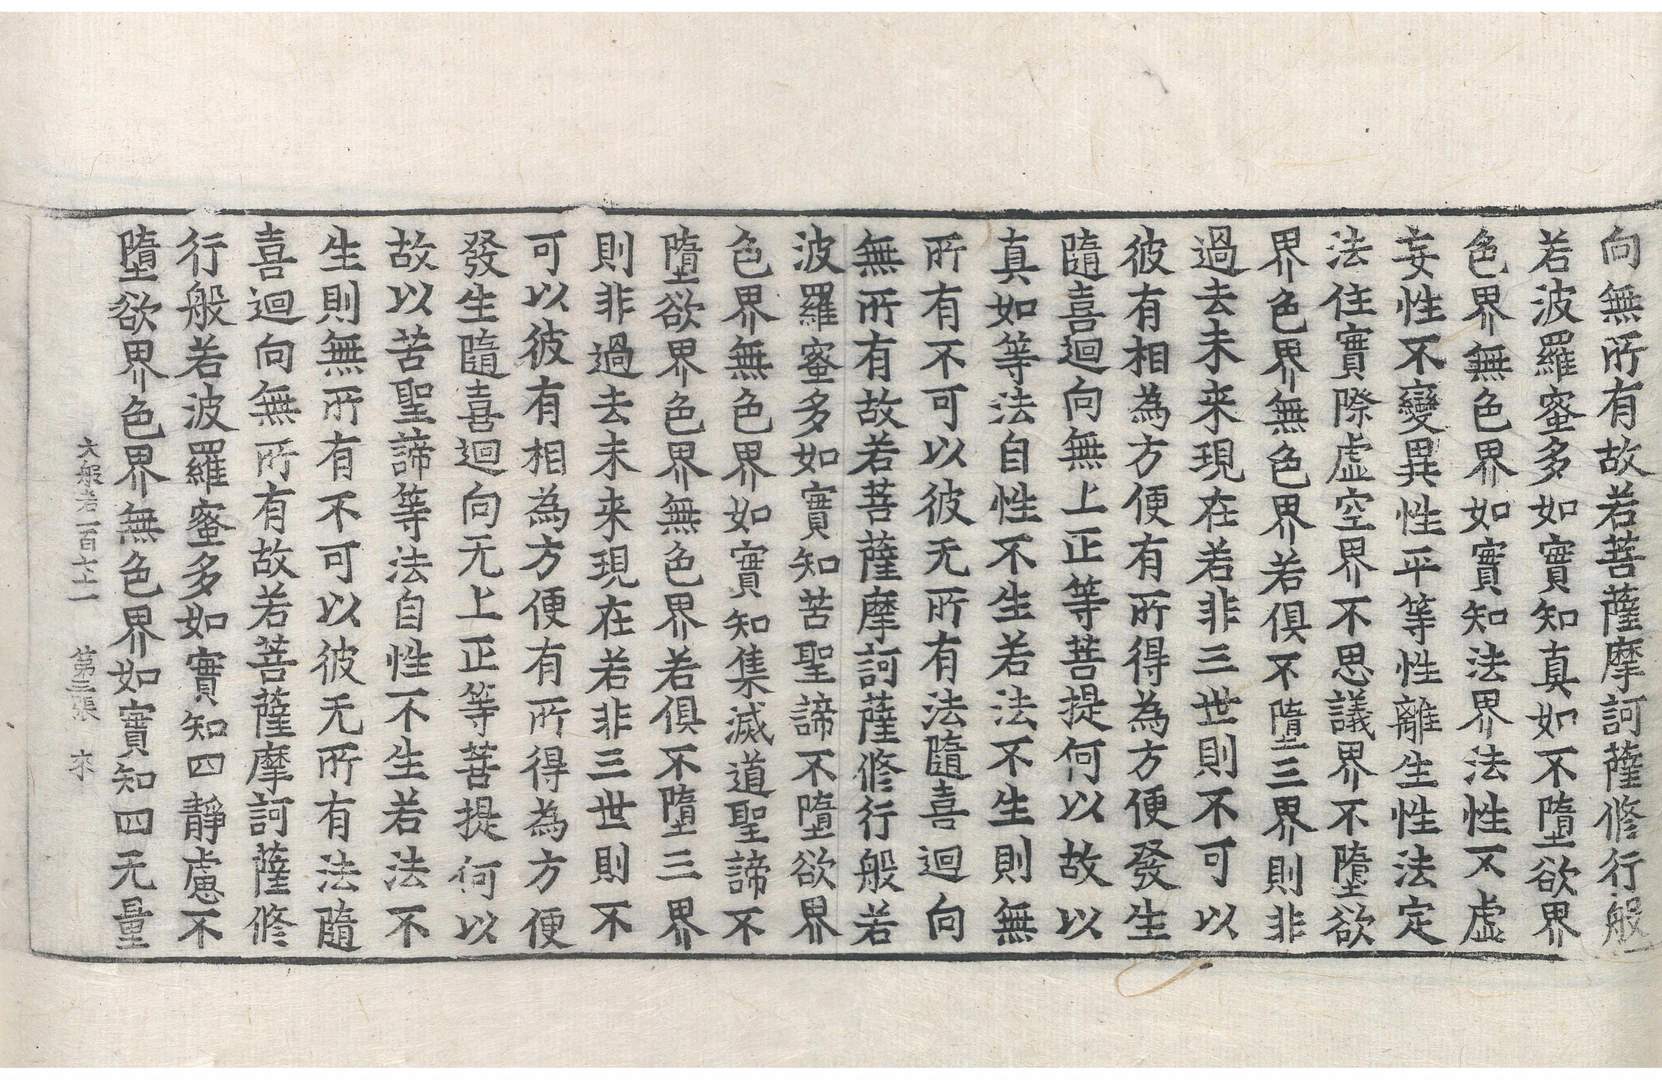 向無所有故若菩薩摩訶薩修行般
若波羅蜜多如實知真如不墮欲界
色界無色界如實知法界法性不虛
妄性不變異性平等性離生性法定
法住實際虛空界不思議界不墮欲
界色界無色界若俱不墮三界則非
過去未来現在若非三世則不可以
彼有相為方便有所得為方便發生
隨喜迴向無上正等菩提何以故以
真如等法自性不生若法不生則無
所有不可以彼无所有法隨喜迴向
無所有故若菩薩摩訶薩修行般若
波羅蜜多如實知苦聖諦不墮欲界
色界無色界如實知集滅道聖諦不
墮欲界色界無色界若俱不墮三界
則非過去未来現在若非三世則不
可以彼有相為方便有所得為方便
發生隨喜迴向无上正等菩提何以
故以苦聖諦等法自性不生若法不
生則無所有不可以彼无所有法隨
喜迴向無所有故若菩薩摩訶薩修
行般若波羅蜜多如實知四靜慮不
墮欲界色界無色界如實知四无量
大般若一百六十一 第三張 来